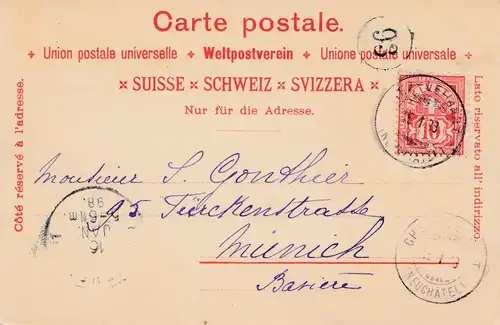 Carte postale.
33
Union postale universelle Weltpostverein Unione postale universale
SUISSE SCHWEIZ SVIZZERA
Nur für die Adresse.
Côté réservé à l'adresse.
Lato riservato all' indirizzo.
10
Monsieur S. Gonthier
25 Türckenstrasse
Münich
Bavière
16
JAN.
5-6 Nm
98.
(NEUCHATEL)